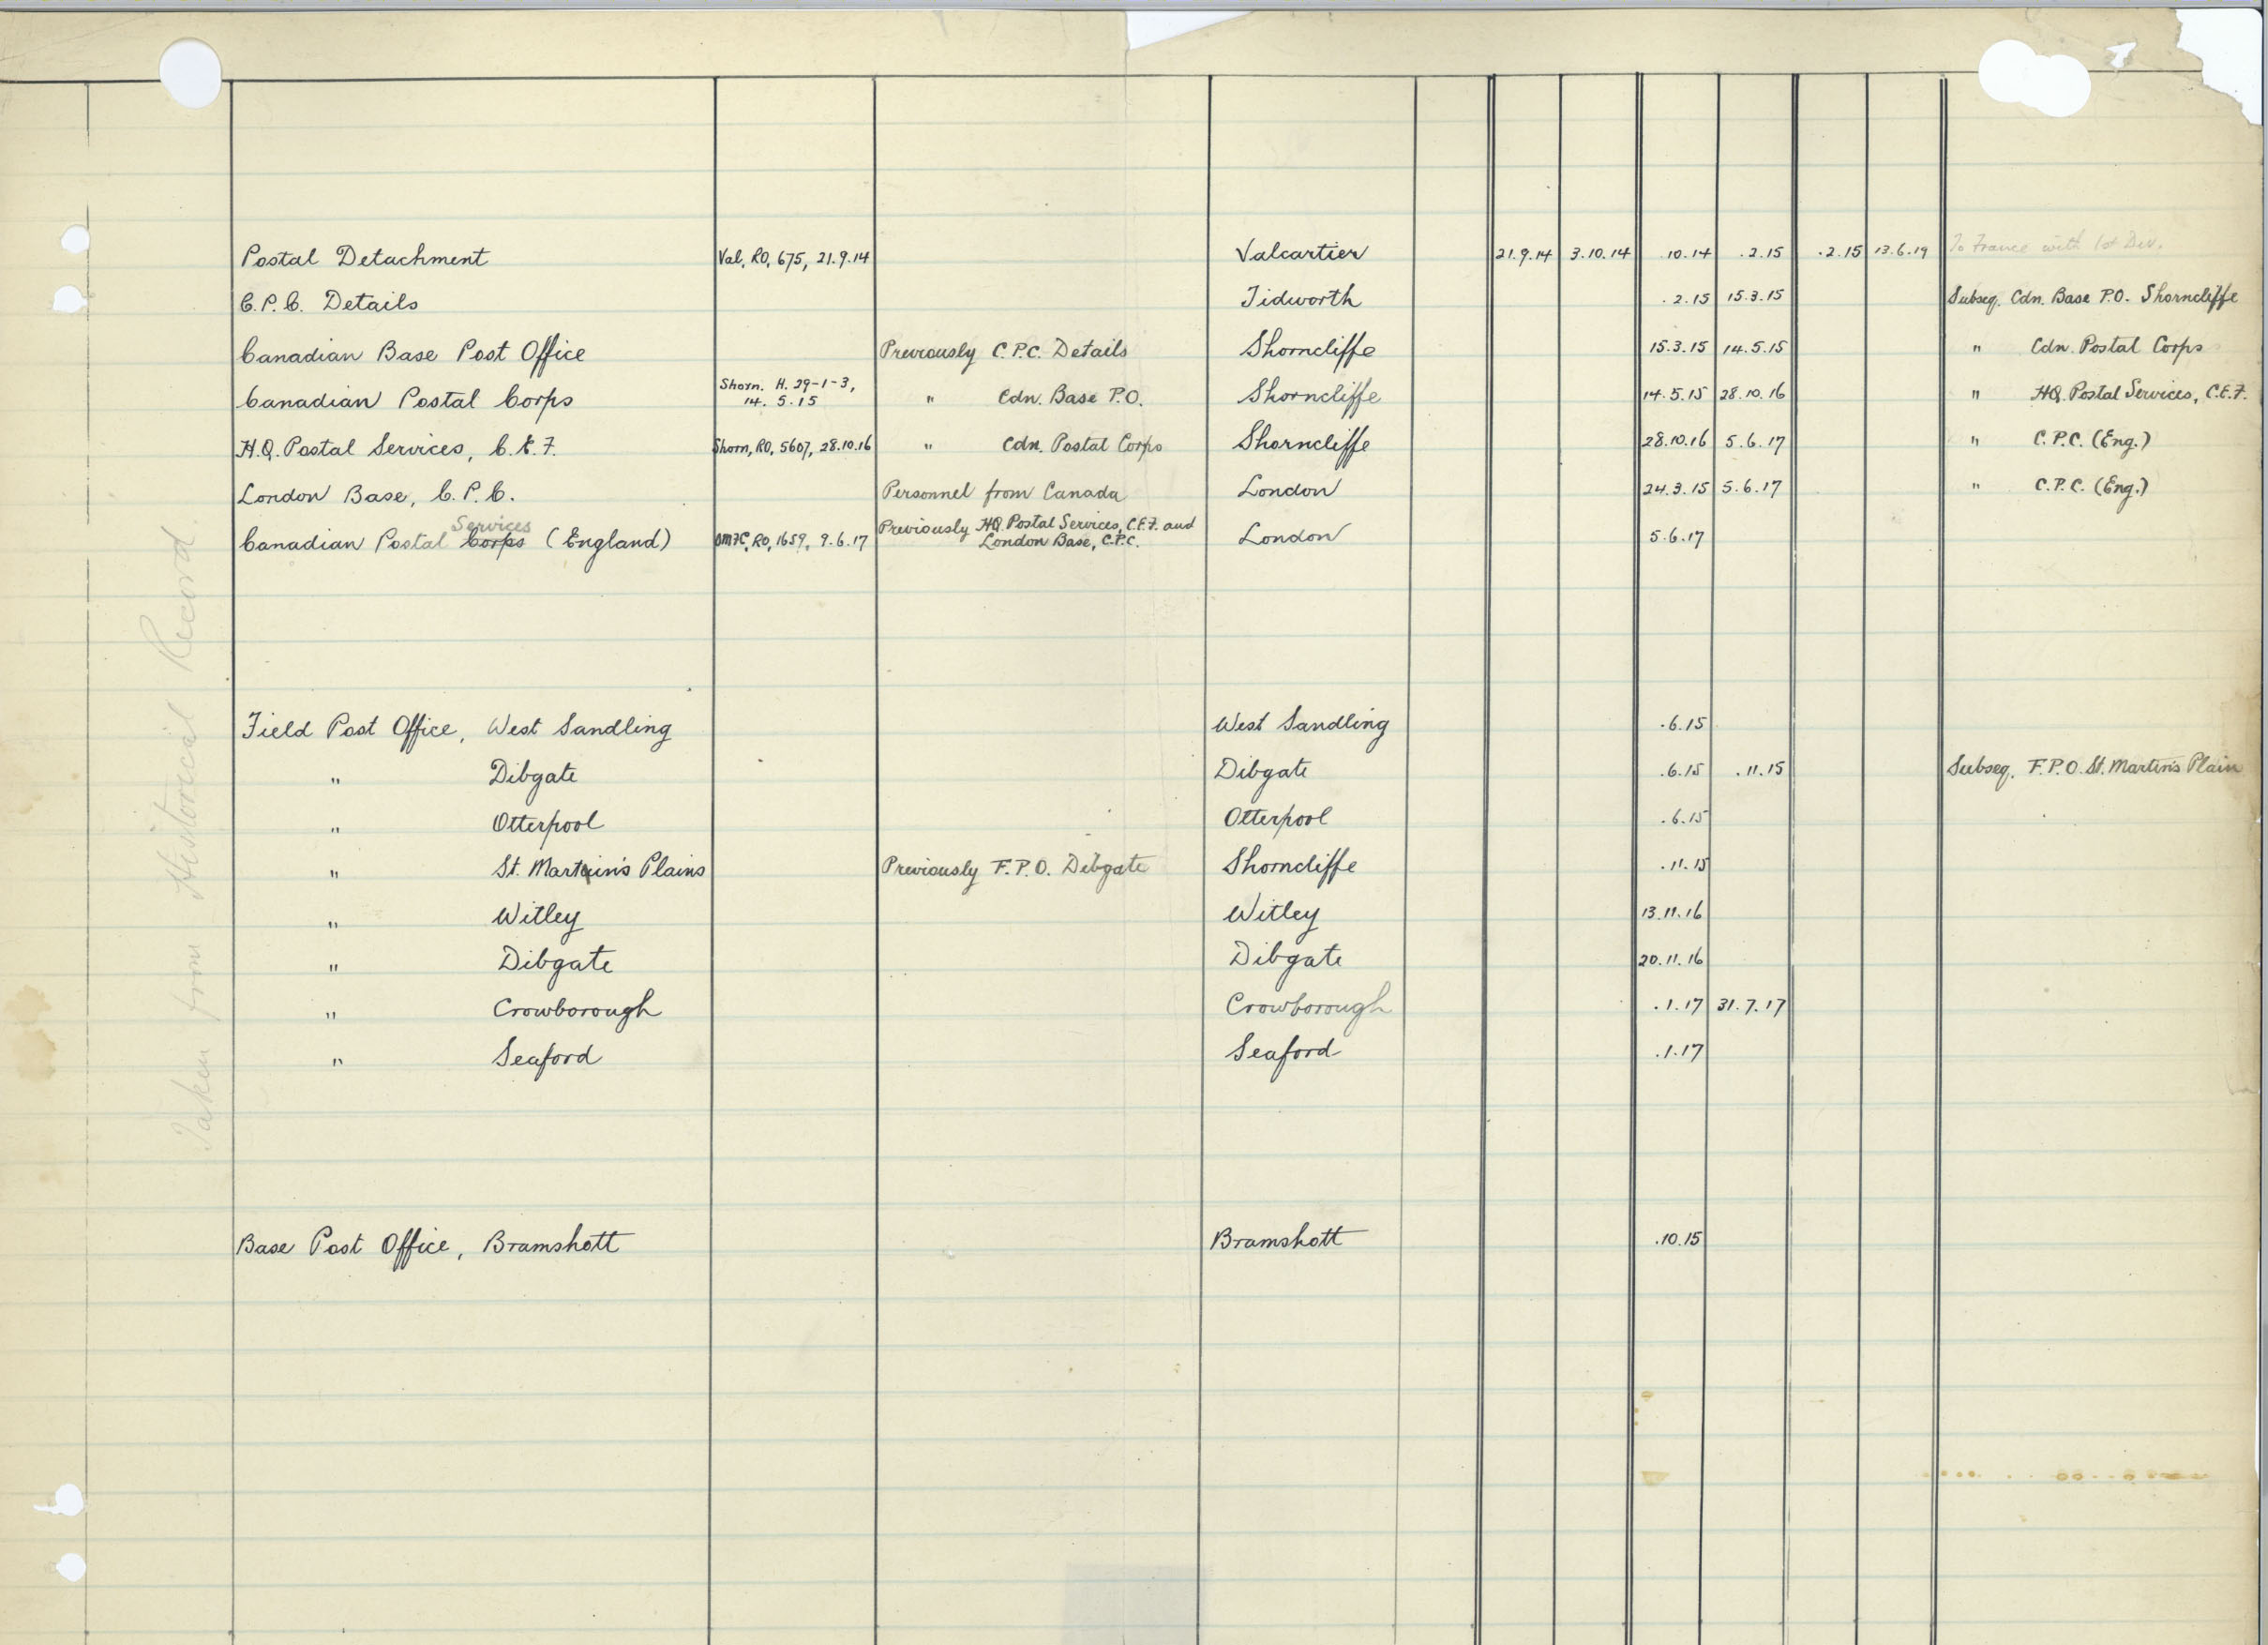 Postal Detachment Val, RO, 675, 21.9.14 Valcartier 21.9.14 3.10.14 .10.14 .2.15 .2.15 13.6.19 To France with 1st Div.
C.P.C. Details Tidworth .2.15 15.3.15 Subseq. Cdn. Base P.O. Shorncliffe
Canadian Base Post Office Previously C.P.C. Details Shorncliffe 15.3.15 14.5.15 " Cdn. Postal Corps
Canadian Postal Corps Shorn. H. 29-1-3, 14.5.15 " Cdn. Base P.O. Shorncliffe 14.5.15 28.10.16 " HQ. Postal Services, C.E.F.
H.Q. Postal Services, C.E.F. Shorn, RO, 5607, 28.10.16 " Cdn. Postal Corps Shorncliffe 28.10.16 5.6.17 " C.P.C. (Eng.)
London Base, C.P.C. Personnel from Canada London 24.3.15 5.6.17 " C.P.C. (Eng.)
Services
Canadian Postal Corps (England) OMFC, RO, 1659, 9.6.17 Previously HQ. Postal Services, C.E.F. and London Base, C.P.C. London 5.6.17
Field Post Office, West Sandling West Sandling .6.15
" Dibgate Dibgate .6.15 .11.15 Subseq. F.P.O. St. Martin's Plain
" Otterpool Otterpool .6.15
" St. Martin's Plains Previously F.P.O. Dibgate Shorncliffe .11.15
" Witley Witley 13.11.16
" Dibgate Dibgate 20.11.16
" Crowborough Crowborough .1.17 31.7.17
" Seaford Seaford .1.17
Base Post Office, Bramshott Bramshott .10.15
Taken from Historical Record.